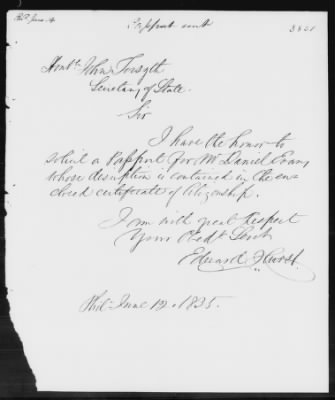 Passport sent
3801
Honble John Forsyth
Secretary of State.
Sir
I have the honor to
solicit a Passport for Mr Daniel Evans
whose description is contained in the en-
closed certificate of Citizenship.
I am with great Respect
Your Obedt Servt
Edward Hurst
Phila June 12. 1835.